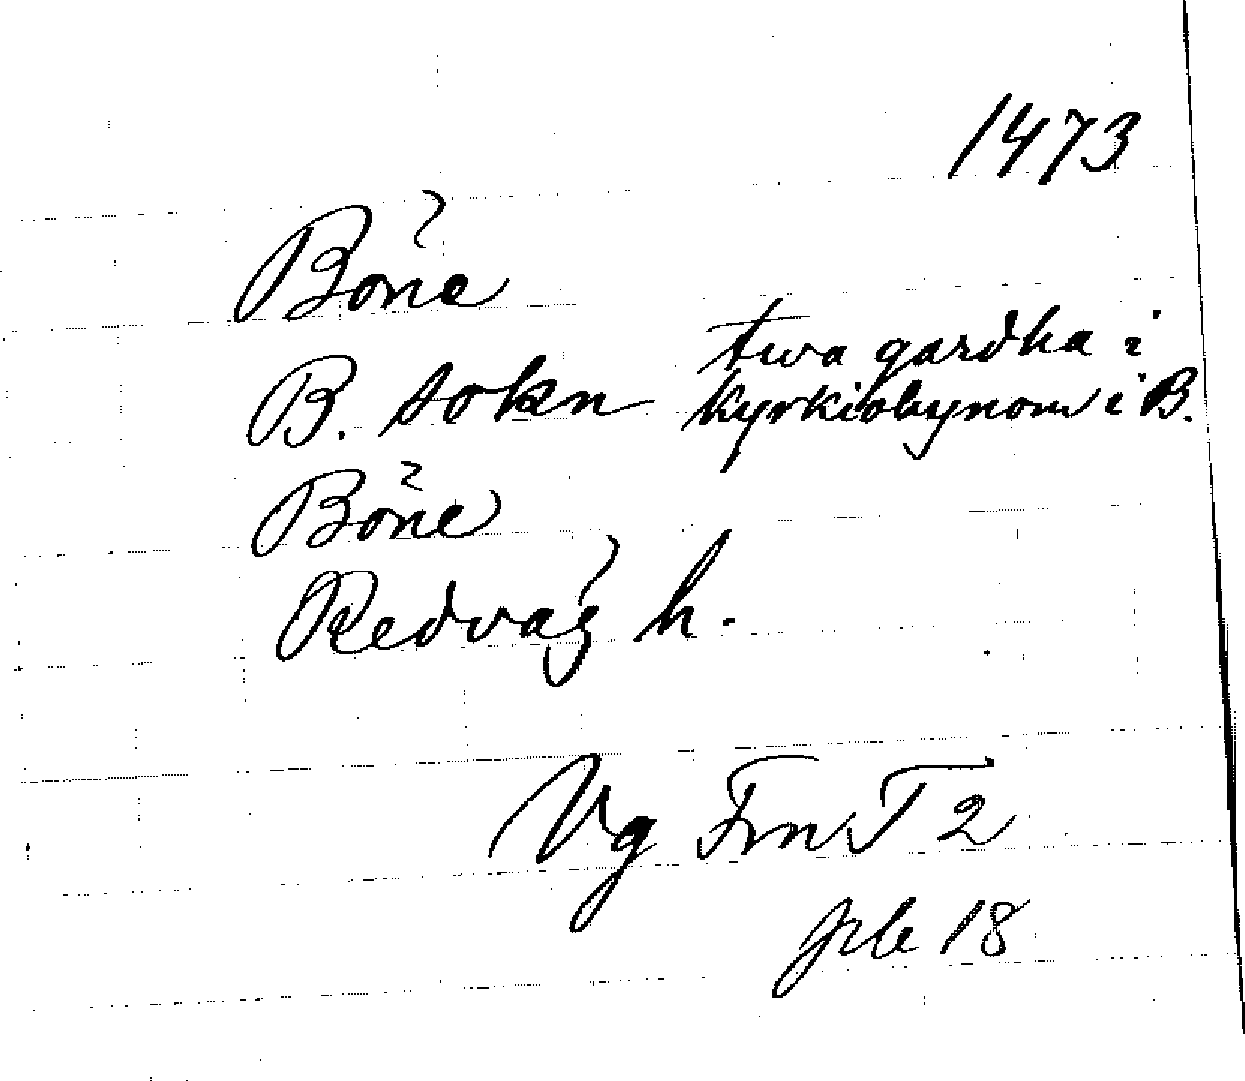 1473
Böne
B. sokn twa gardha i
kyrkiobynom i B.
Böne
Redväg h.
Vg FmT 2
s. 18